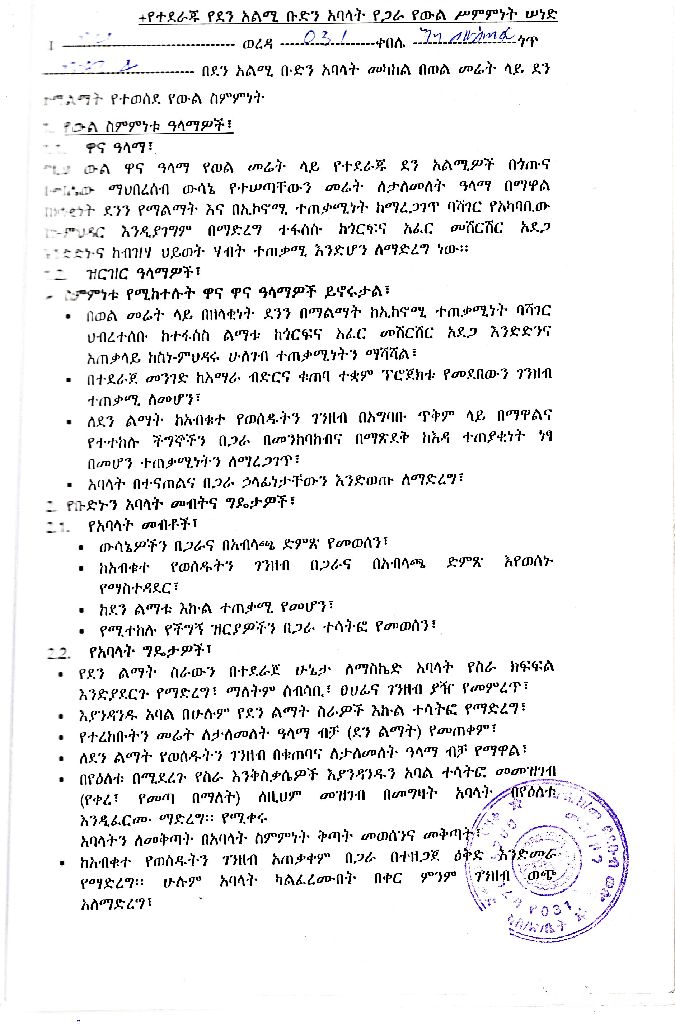 +የተደራጁ የደን አልሚ ቡድን አባላት የጋራ የውል ሥምምነት ሠነድ
ወረዳ 031 ቀበሌ ጎጥ
በደን አልሚ ቡድን አባላት መካከል በወል መሬት ላይ ደን
የተወሰደ የውል ስምምነት
የውል ስምምነቱ ዓላማዎች፣
ዋና ዓላማ፣
ውል ዋና ዓላማ የወል መሬት ላይ የተደራጁ ደን አልሚዎች በጎጡና
ማህበረሰብ ውሳኔ የተሠጣቸውን መሬት ለታለመለት ዓላማ በማዋል
ደንን የማልማት እና በኢኮኖሚ ተጠቃሚነት ከማረጋገጥ ባሻገር የአካባቢው
እንዲያገግም በማድረግ ተፋሰሱ ከጎርፍና አፈር መሸርሸር አደጋ
ከብዝሃ ህይወት ሃብት ተጠቃሚ እንድሆን ለማድረግ ነው።
ዝርዝር ዓላማዎች፣
ስምምነቱ የሚከተሉት ዋና ዋና ዓላማዎች ይኖሩታል፣
• በወል መሬት ላይ በዘላቂነት ደንን በማልማት ከኢኮኖሚ ተጠቃሚነት ባሻገር
ህብረተሰቡ ከተፋሰስ ልማቱ ከጎርፍና አፈር መሸርሸር አደጋ እንድድንና
አጠቃላይ ከስነ-ምህዳሩ ሁለገብ ተጠቃሚነትን ማሻሻል፣
• በተደራጀ መንገድ ከአማራ ብድርና ቁጠባ ተቋም ፕሮጀክቱ የመደበውን ገንዘብ
ተጠቃሚ ለመሆን፣
• ለደን ልማት ከአብቁተ የወሰዱትን ገንዘብ በአግባቡ ጥቅም ላይ በማዋልና
የተተከሉ ችግኞችን በጋራ በመንከባከብና በማጽደቅ ከእዳ ተጠያቂነት ነፃ
በመሆን ተጠቃሚነትን ለማረጋገጥ፣
• አባላት በተናጠልና በጋራ ኃላፊነታቸውን እንድወጡ ለማድረግ፣
2. የቡድኑን አባላት መብትና ግዴታዎች፣
2.1. የአባላት መብቶች፣
▪ ውሳኔዎችን በጋራና በአብላጫ ድምጽ የመወሰን፣
▪ ከአብቁተ የወሰዱትን ገንዘብ በጋራና በአብላጫ ድምጽ እየወሰኑ
የማስተዳደር፣
▪ ከደን ልማቱ እኩል ተጠቃሚ የመሆን፣
▪ የሚተከሉ የችግኝ ዝርያዎችን በጋራ ተሳትፎ የመወሰን፣
2.2. የአባላት ግዴታዎች፣
• የደን ልማት ስራውን በተደራጀ ሁኔታ ለማስኬድ አባላት የስራ ክፍፍል
እንድያደርጉ የማድረግ፣ ማለትም ሰብሳቢ፣ ፀሀፊና ገንዘብ ያዥ የመምረጥ፣
• እያንዳንዱ አባል በሁሉም የደን ልማት ስራዎች እኩል ተሳትፎ የማድረግ፣
• የተረከቡትን መሬት ለታለመለት ዓላማ ብቻ (ደን ልማት) የመጠቀም፣
• ለደን ልማት የወሰዱትን ገንዘብ በቁጠባና ለታለመለት ዓላማ ብቻ የማዋል፣
• በየዕለቱ በሚደረጉ የስራ እንቅስቃሴዎች እያንዳንዱን አባል ተሳትፎ መመዝገብ
(የቀረ፣ የመጣ በማለት) ለዚህም መዝገብ በመግዛት አባላት በየዕለቱ
እንዲፈርሙ ማድረግ። የሚቀሩ
አባላትን ለመቅጣት በአባላት ስምምነት ቅጣት መወሰንና መቅጣት፣
• ከአብቁተ የወሰዱትን ገንዘብ አጠቃቀም በጋራ በተዘጋጀ ዕቅድ እንድመራ
የማድረግ። ሁሉም አባላት ካልፈረሙበት በቀር ምንም ገንዘብ ወጭ
አለማድረግ፣
031